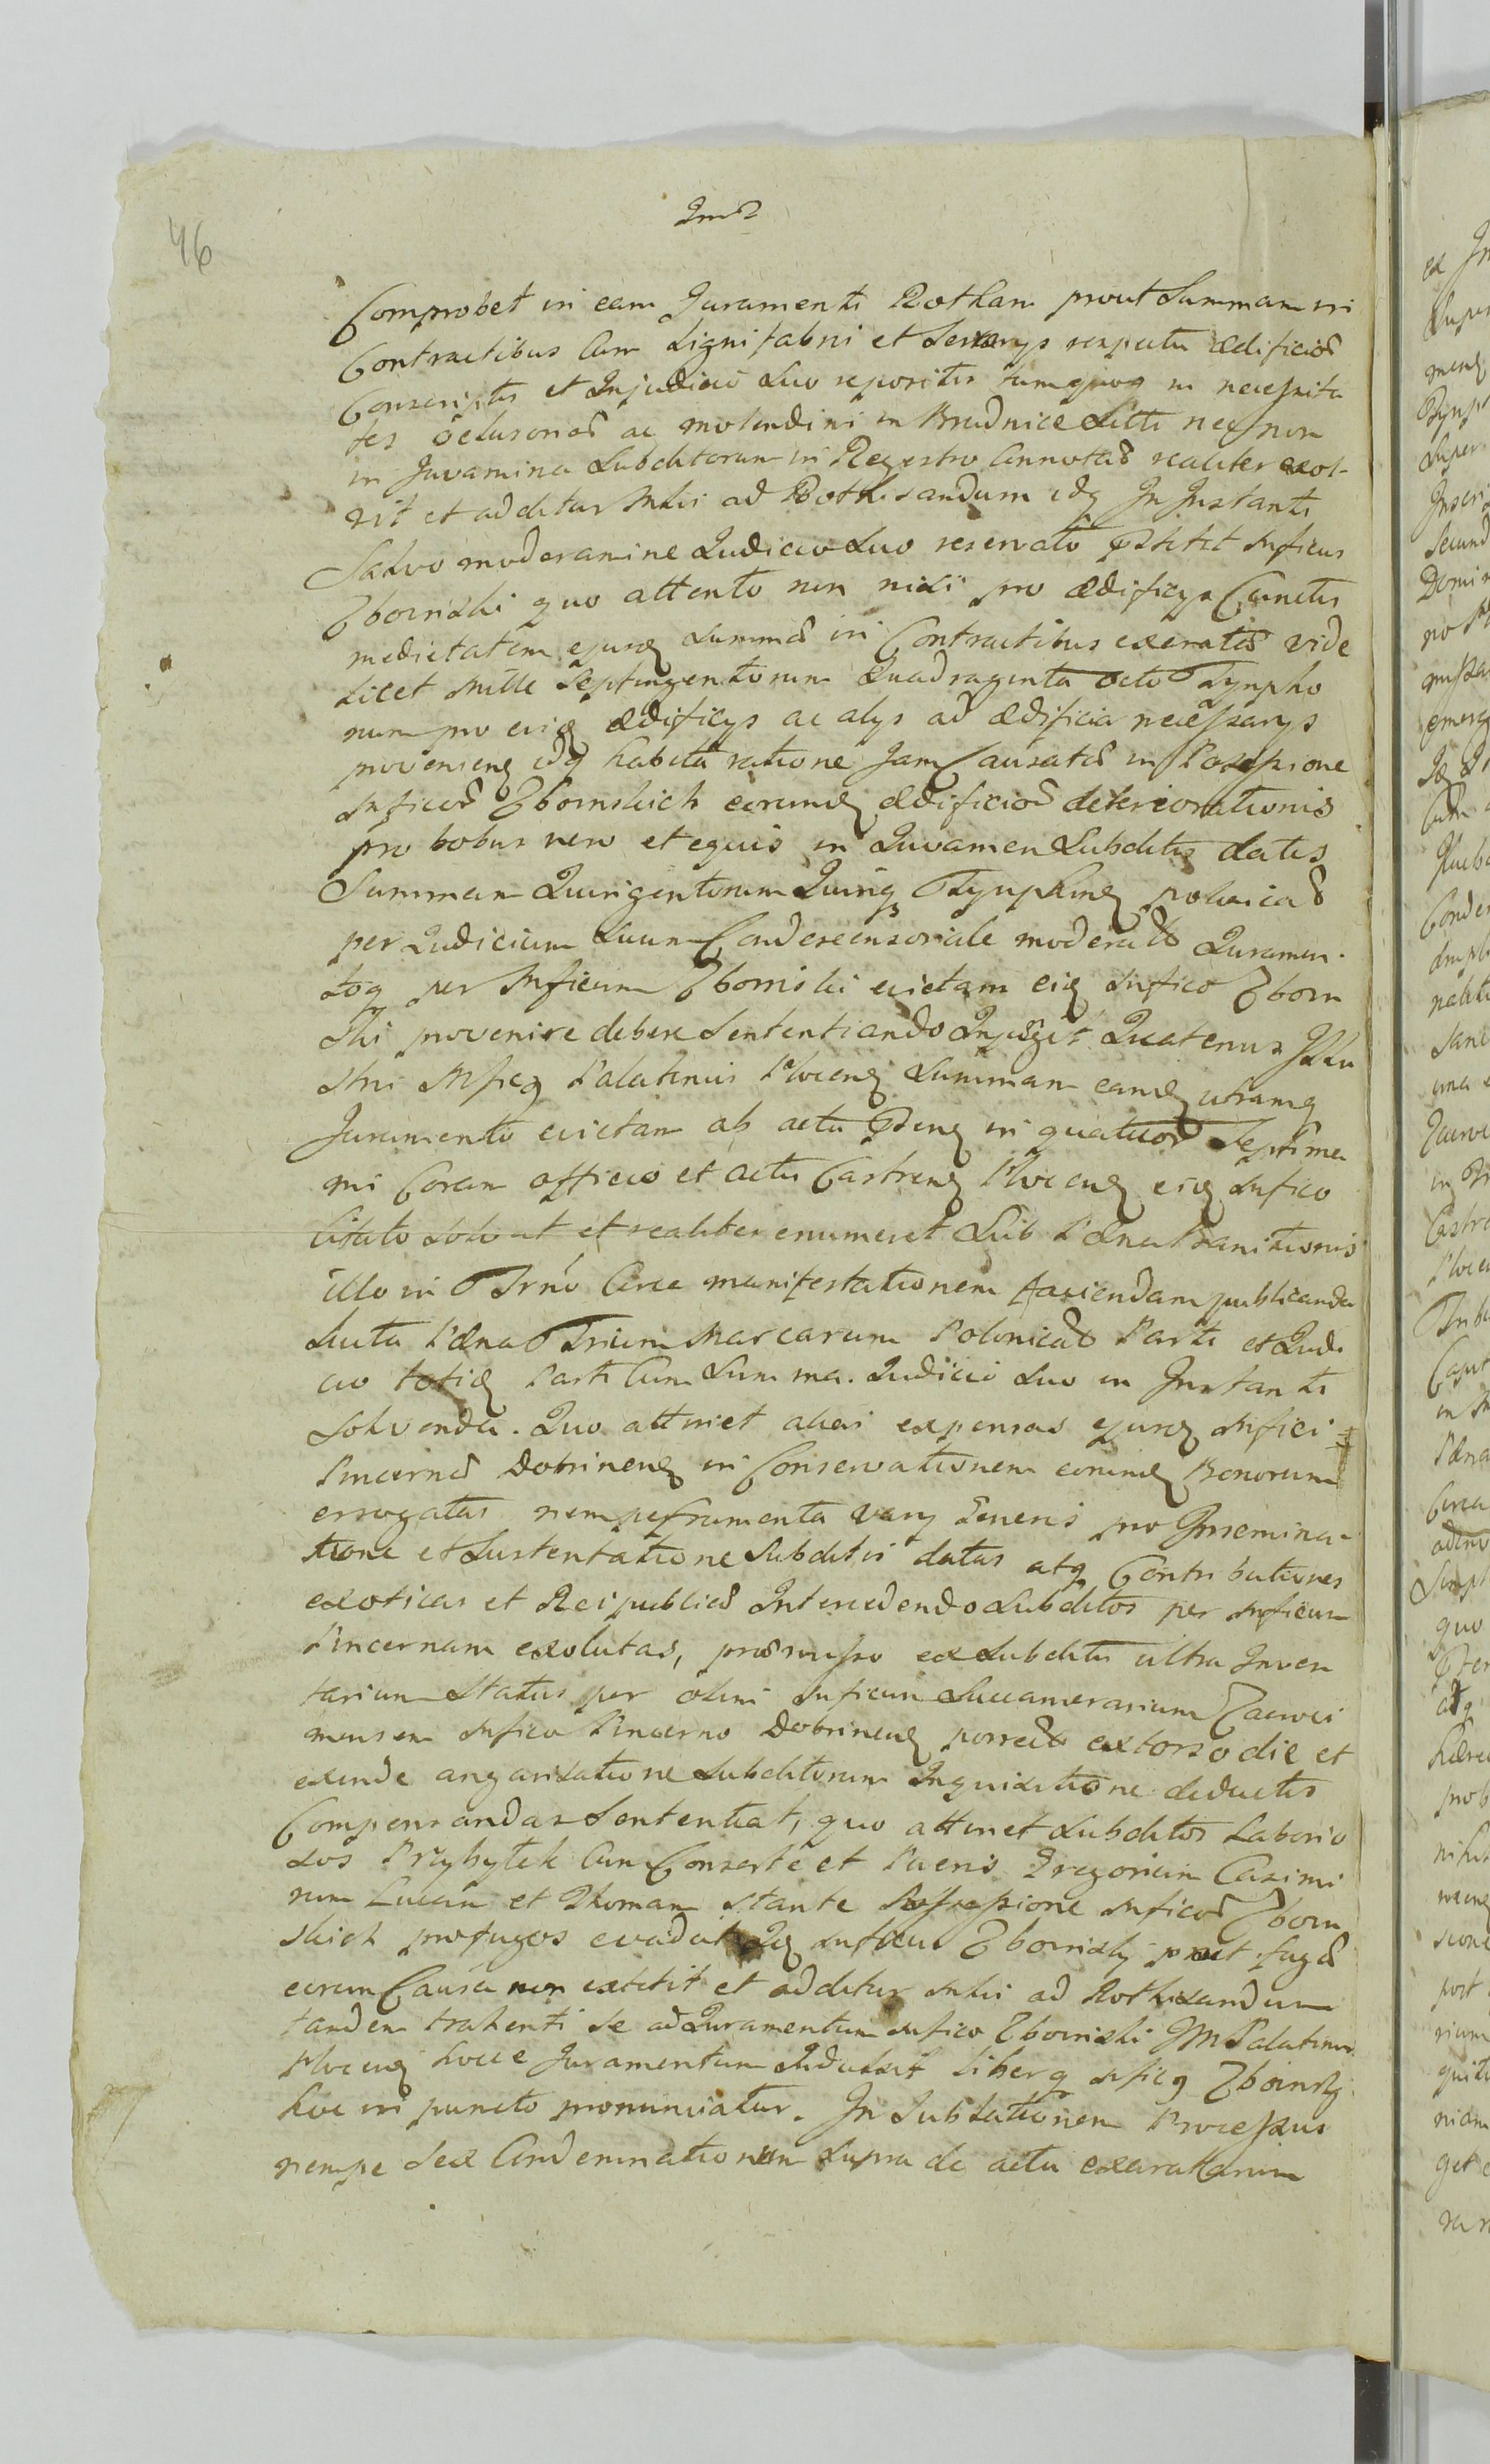 46
Comprobet in eam Juramenti Rotham prout Summam in
Contractibus Cum Lignifabri et Serarys respectu ædificior
Conscriptis et Injudicio Suo repositis tumquoq in necessita
tes ac molendini in Brudnice Sitti necnon
in Juvamina Subditorum in Regestro Annotat realiter exol-
vit et additur Mlri ad Rothisandum idq In Instanti
Salvo moderamine Judicio Suo reservato pstitit Mficus
Zboinski quo attento non nisi pro ædificys Cunctis
medietatem ejusq Summæ in Contractibus exeratis vide
licet Mille Septingentorum Quadraginta octo Tympho
num pro eisq ædificys ac alys ad ædificia necessarys
provenienq idq habita ratione Jam Causatæ in Possessione
Mficor Zboinskich eorumq ædificior deteriorationis
pro bobus vero et equis in Juvamen Subditis datis
Summam Quingentorum Quinq Tymphonq polonical
per Judicium Suum Condescensoriale moderat Juramen-
toq per Mficum Zboinski evictam eiq Mfico Zboin
ski provenire debere Sententiando Injugit Quatenus Illu
stris Mfcq Palatinus Plocenq Summam eamq utramq
Juramento evictam ab actu psenq in quatuor Septima
nis Coram officio et actis Castrenq Plocenq eiq Mfico
Citato Solvat et realiter enumeret Sub Pæna Banitionis
illo in Trno Circa manifestationem faciendam publicanda
Luita Pæna Trium Marcarum Polonical Parti et Judi
cio totiq Parti Cum Summa. Judicio Suo in Instanti
Solvenda. Quo attinet alias expensas ejusq Mfici
Pincernæ Dobrinenq in Conservationem eorumq Bonorum
errogatas nempe frumenta vary Generis pro Insemina-
tione et Sustentatione Subditis datas atq Contributiones
exoticas et Reipublicæ Intercedendo Subditos per Mficum
Pincernam exolutas, præmisso ex Subditis ultra Inven
tarium Status per olim Mficum Succamerarium Zacroci
mensem Mfico Pincerno Dobrinenq porrect extorso die et
exinde angarisatione Subditorum Inquisitione deductis
Compensandas Sententiat, quo attinet Subditos Laborio
sos Przybytek Cum Consorte et Pueris Gregorium Casimi
rum Lucam et Thomam Stante Possessione Mficor Zboin
skich profugos evadat Mficus Zboinsky prout fugæ
eorum Causa non extitit et additur Mlri ad Rothisandum
tandem trahenti Se ad Juramentum Mfico Zboinski JM Palatinus
Plocenq hocce Juramentum Indulsit liberq Mficq Zboinsky
hoc in puncto pronunciatur. In Sublationem Processus
nempe Sex Condemnationum Supra de actu exaratarum